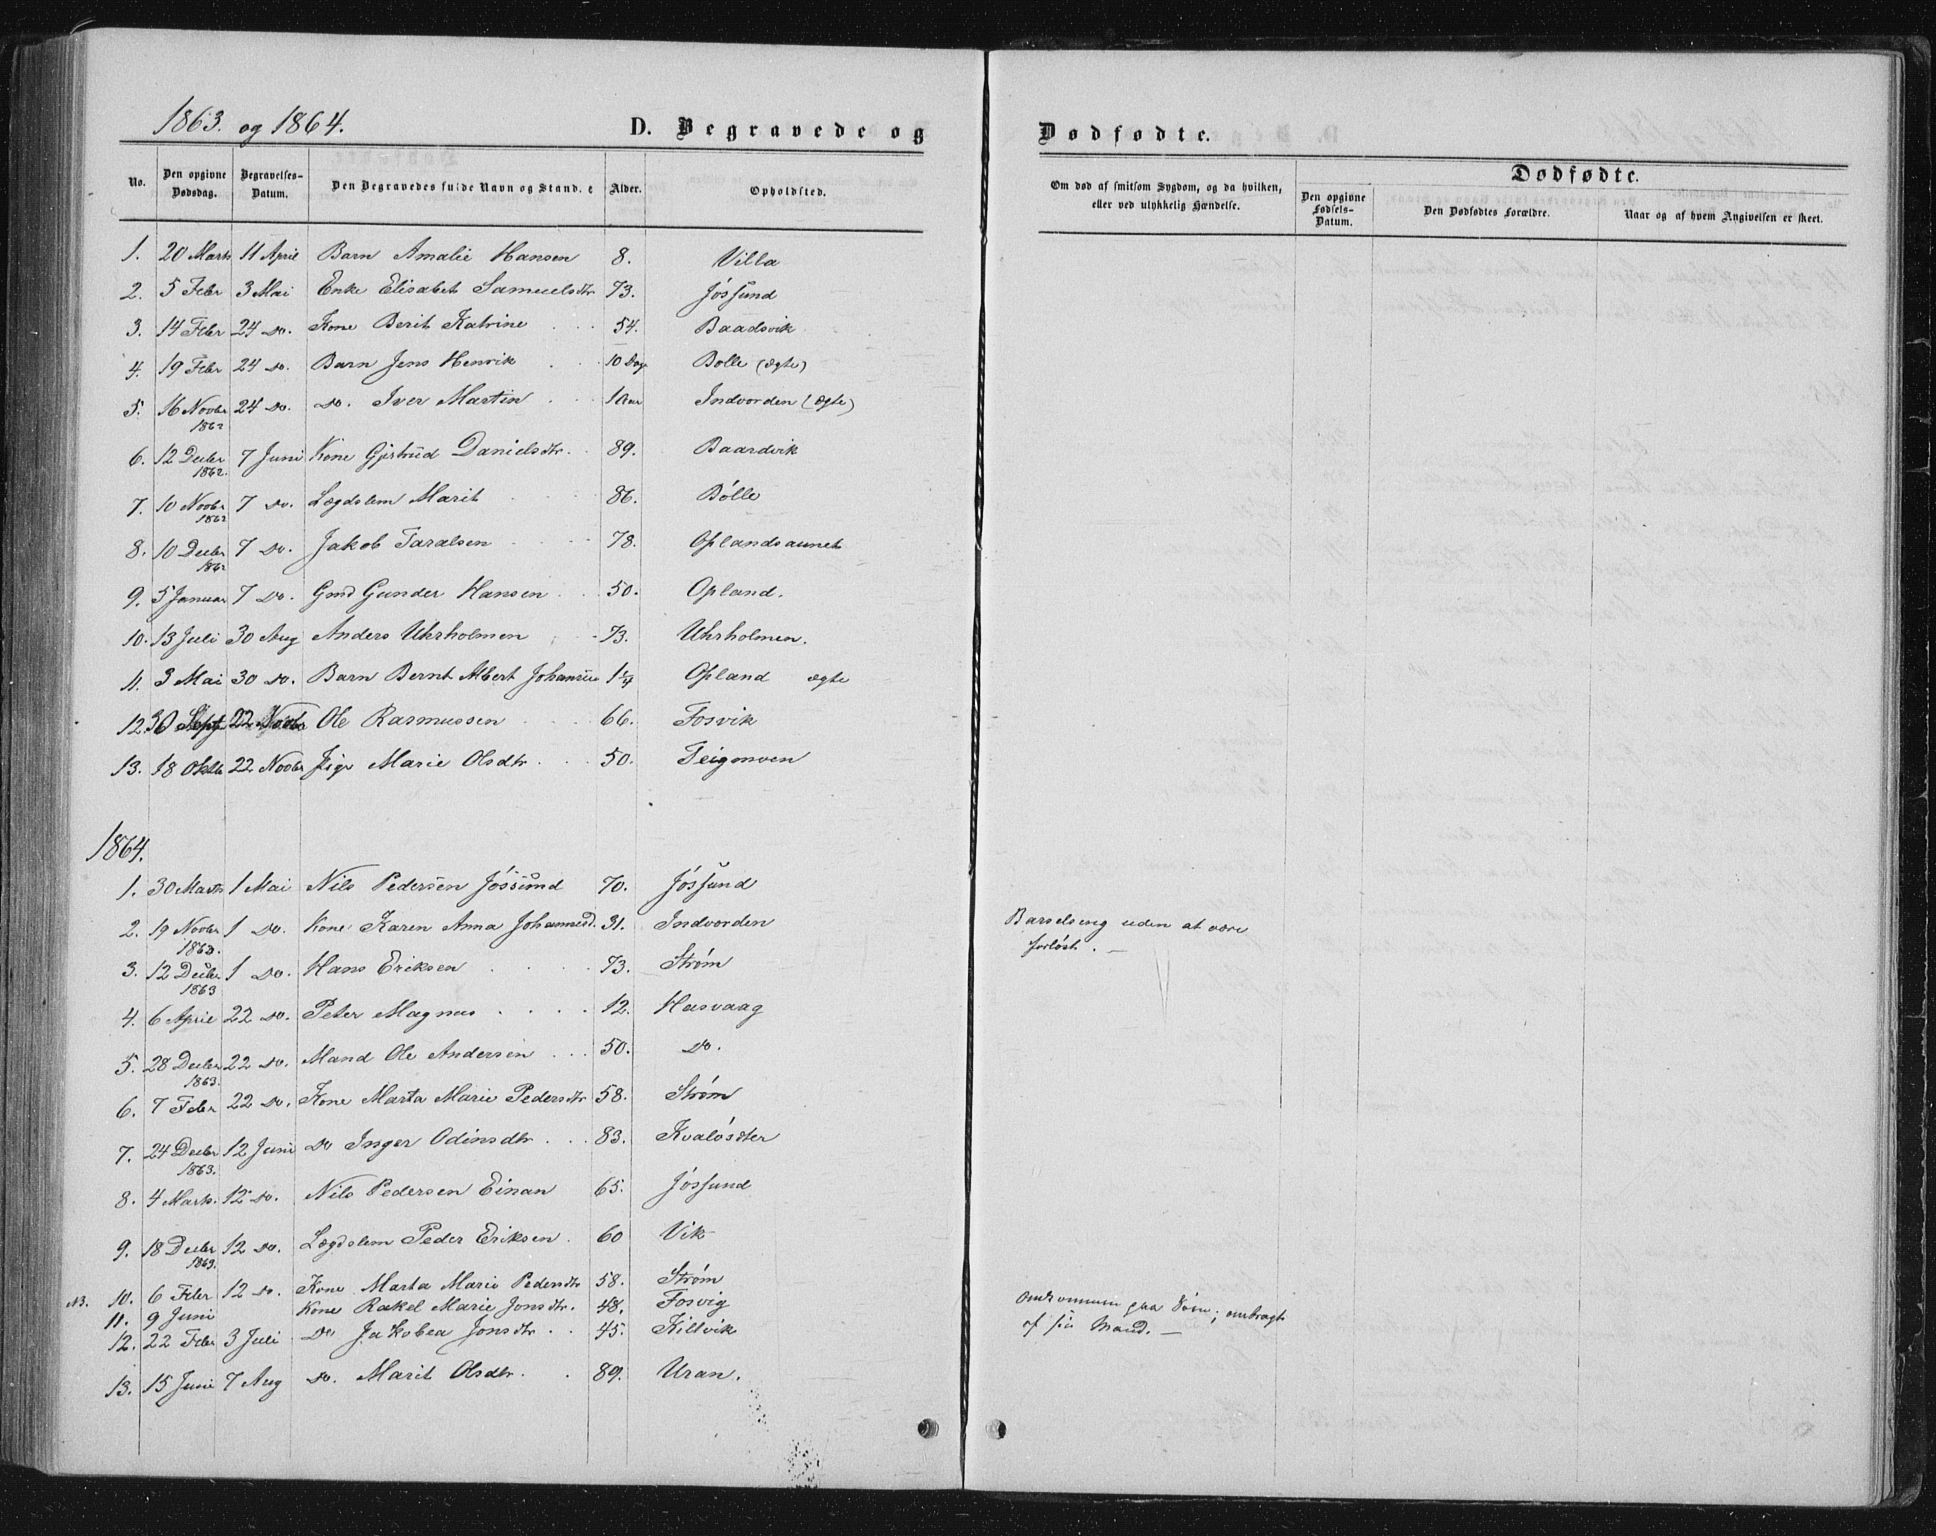 1863. og 1864.
D. Begravede og
Dødfødte.
No. Den opgivne Dødsdag. Begravelses-Datum. Den Begravedes fulde Navn og Stand. Alder. Opholdsted.
Om død af smitsom Sygdom, og da hvilken, eller ved ulykkelig Hændelse.
Dødfødte.
Den opgivne Fødsels-Datum. Den Dødfødtes Forældre. Naar og af hvem Angivelsen er skeet.
1. 20 Marts 11 April Barn Amalie Hansen 8. Villa
2. 5 Febr 3 Mai Enke Elisabet Samuelsdtr 73. Jøssund
3. 14 Febr 24 Do. Kone Berit Katrine 54. Baadsvik
4. 19 Febr 24 Do. Barn Jens Henrik 10 Dage Bolle (ægte)
5. 16 Novbr 1862 24 Do. Do. Iver Martin 1 Aar Indvorden (ægte)
6. 12 Decbr 1862. 7 Juni Kone Gjertrud Danielsdtr. 89. Baardvik
7. 10 Novbr 1862 7 Do. Lægdslem Marit 86. Bølle
8. 10 Decbr 1862 7 Do. Jakob Taralsen 78. Oplandsaunet
9. 5 Januar 7 Do. Gmd Gunder Hansen 50. Opland.
10. 13 Juli 30 Aug Anders Uhrholmen 73. Uhrholmen.
11. 3 Mai 30 Do. Barn Bernt Albert Johansen 1 1/4 Opland ægte
12. 30 Sept 22 Novbr Ole Rasmussen 66. Fosvik
13. 18 Oktb 22 Novbr Pige Marie Olsdtr. 50. Teigmoen
1864.
1. 30 Marts 1 Mai Nils Pedersen Jøssund 70. Jøssund
2. 19 Novbr 1863. 1 Do. Kone Karen Anna Johannesd. 31. Indvorden Barselseng uden at være
forløst. —
3. 12 Decbr 1863 1 Do. Hans Eriksen 73. Strøm
4. 6 April 22 Do. Peter Magnus 12. Hasvaag
5. 28 Decbr 1863. 22 Do. Mand Ole Andersen 50. Do.
6. 7 Febr 22 Do. Kone Marta Marie Pedersdtr 58. Strøm
7. 24 Decbr 1863. 12 Juni Do Inger Odinsdtr. 83. Kvaløsæter
8. 4 Marts. 12 Do. Nils Pedersen Einan 65. Jøssund
9. 18 Decbr 1863. 12 Do. Lægdslem Peder Eriksen. 60 Vik
10. 6 Febr 12 Do. Kone Marta Marie Pedersdtr 58. Strøm
NB. 11. 9 Juni Kone Rakel Marie Jonsdtr. 48. Fosvig Omkommen paa Søen; ombragt
af sin Mand. —
12. 22 Febr 3 Juli Do Jakobea Jonsdtr. 45. Killvik
13. 15 Juni 7 Aug Do. Marit Olsdtr. 89. Uran.